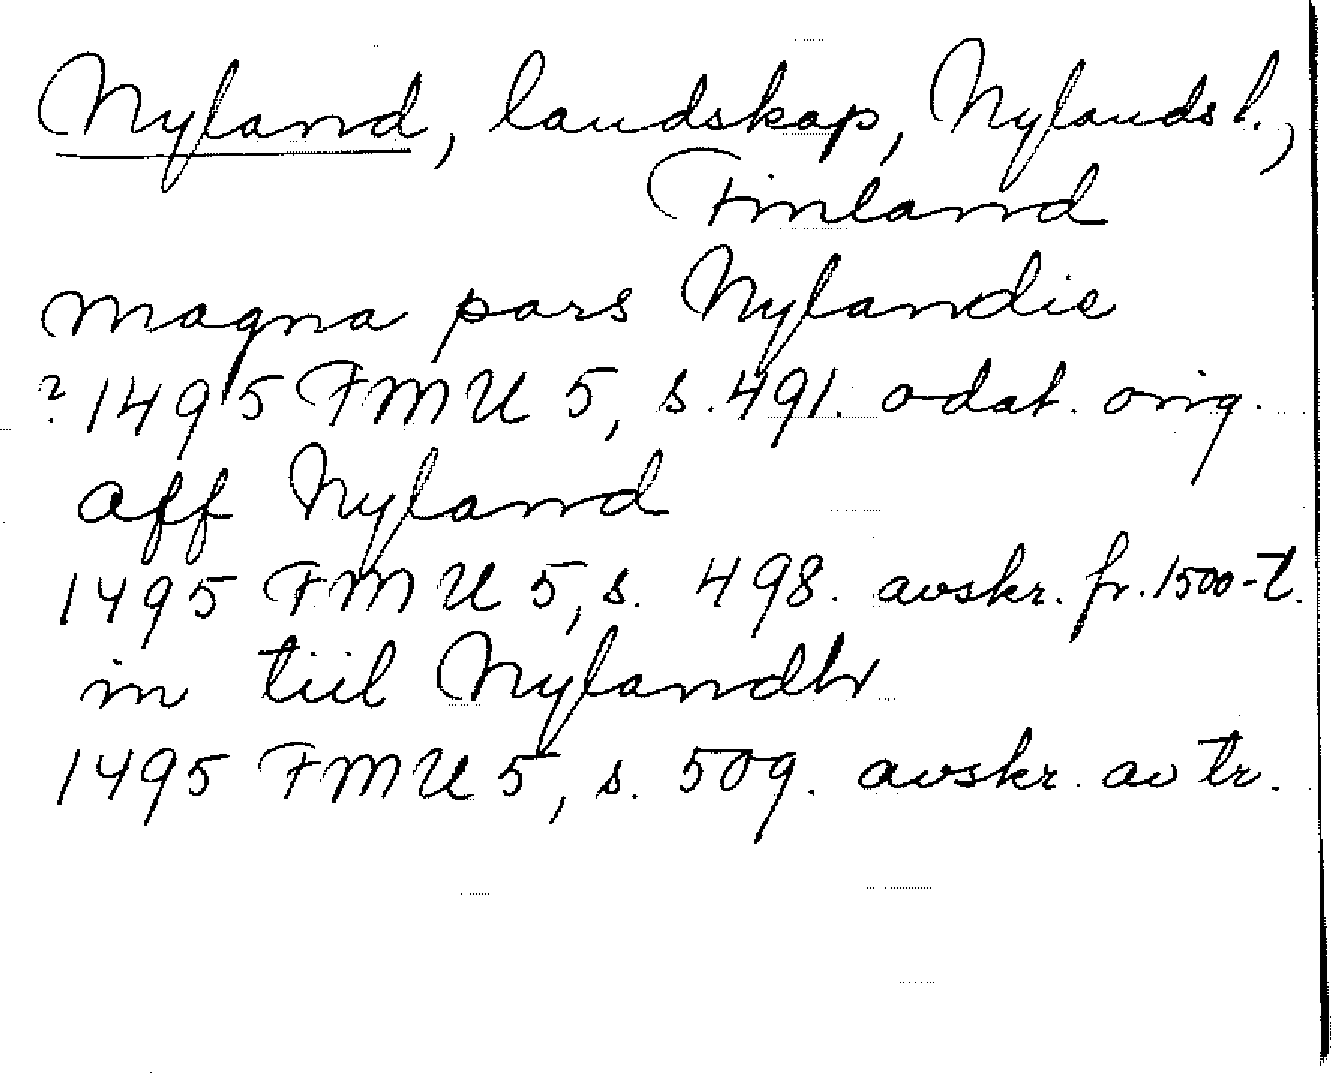 Nyland, landskap, Nylands l.,
Finland
magna pars Nylandie
?1495 FMU 5, s. 491. odat. orig.
aff Nyland
1495 FMU 5, s. 498. avskr. fr. 1500-t.
in tiil Nylandh
1495 FMU 5, s. 509. avskr. av tr.